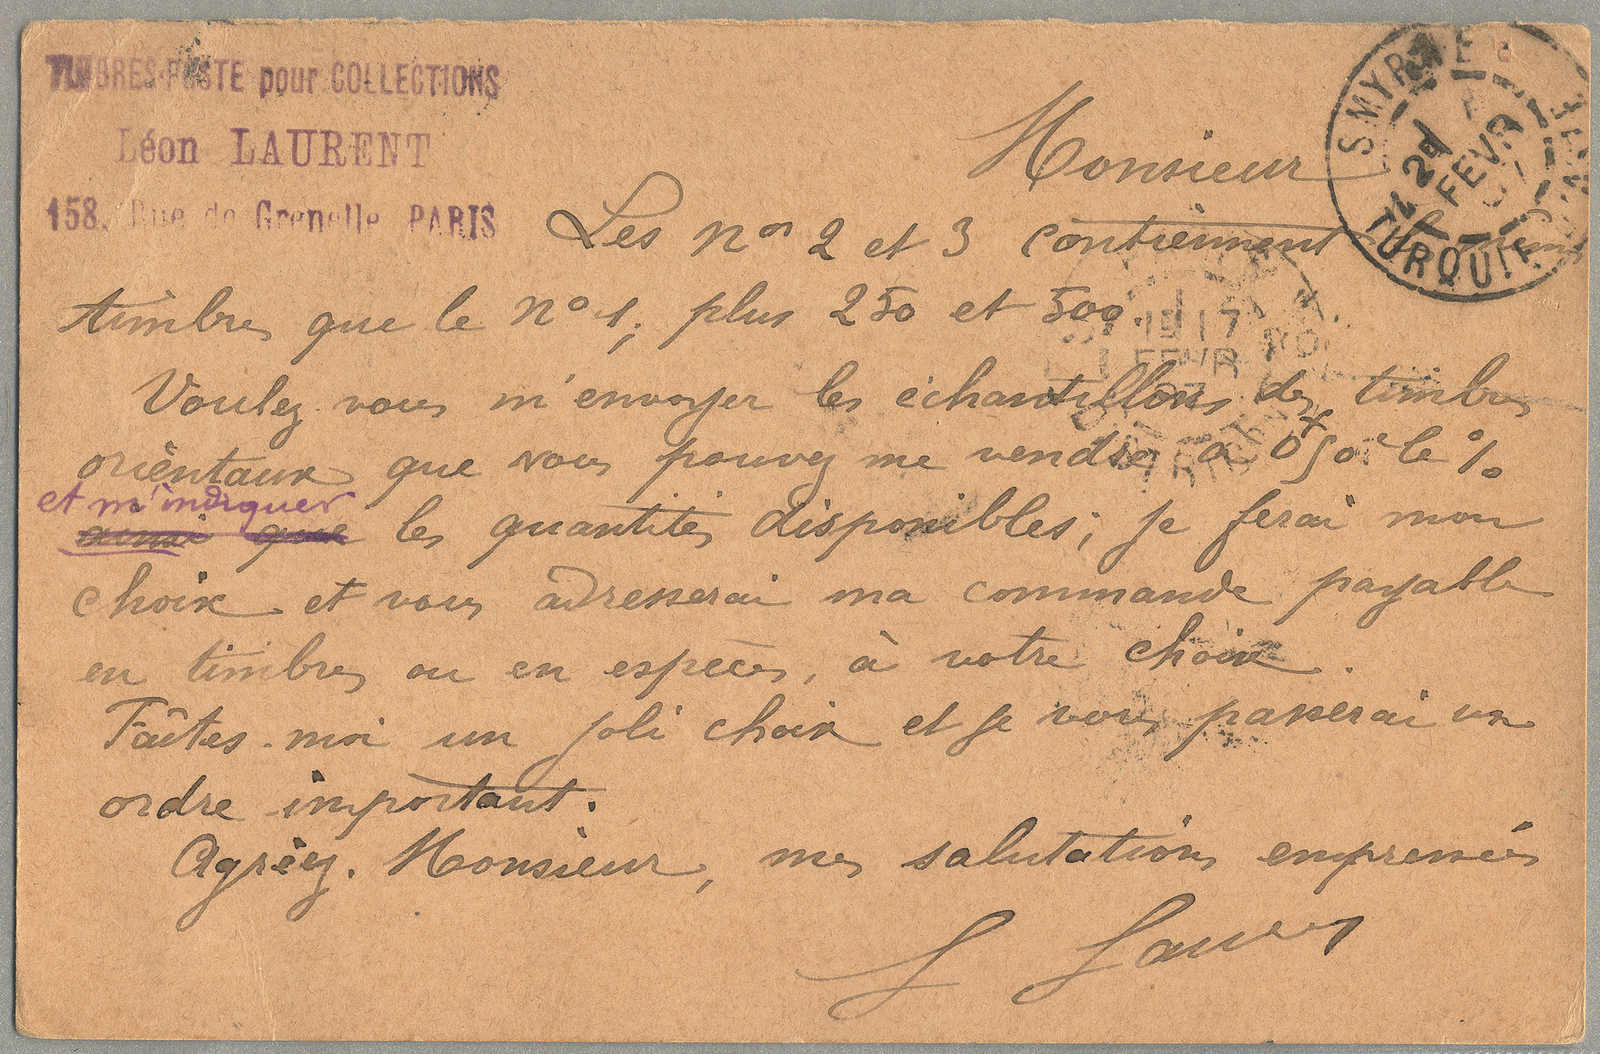 TIMBRES-POSTE pour COLLECTIONS
Léon LAURENT
158, Rue de Grenelle PARIS
SMYRNE
TURQUIE
2 FEVR
17
FEVR
Monsieur
Les nos 2 et 3 contiennent
timbres que le no 1, plus 250 et 500.
Voulez-vous m'envoyer les échantillons des timbres
orientaux que vous pouvez me vendre à 0f50c le %
et m'indiquer
ainsi que les quantités disponibles; je ferai mon
choix et vous adresserai ma commande payable
en timbres ou en espèces, à votre choix.
Faîtes-moi un joli choix et je vous passerai un
ordre important.
Agréez, Monsieur, mes salutations empressées
L Laurent